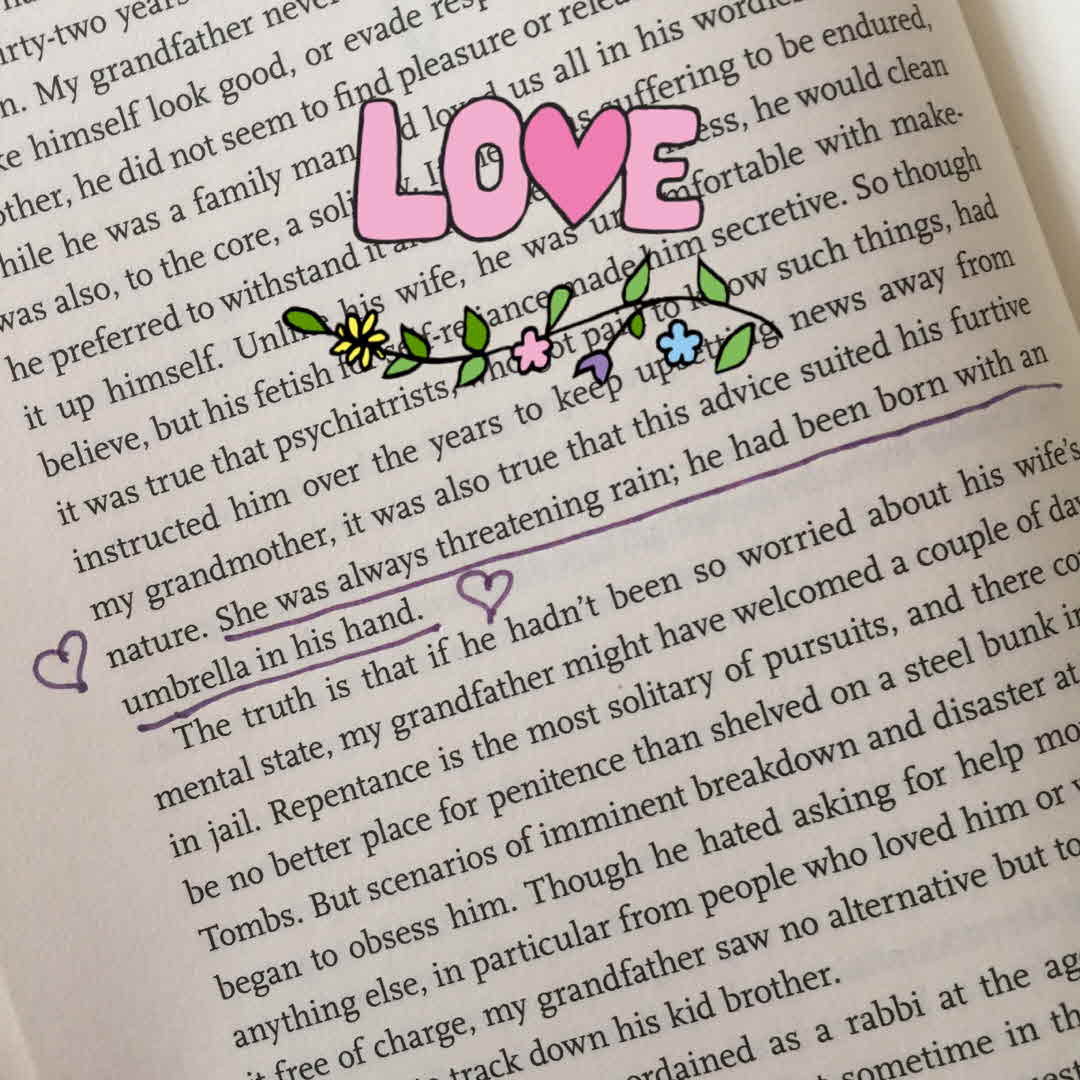 irty-two years
n. My grandfather never
ke himself look good, or evade resp
other, he did not seem to find pleasure or relea
hile he was a family man d loved us all in his wordle
was also, to the core, a soli suffering to be endured,
he preferred to withstand it ess, he would clean
it up himself. Unlike his wife, he was uncomfortable with make-
believe, but his fetish for self-reliance made him secretive. So though
it was true that psychiatrists, who got paid to know such things, had
instructed him over the years to keep upsetting news away from
my grandmother, it was also true that this advice suited his furtive
nature. She was always threatening rain; he had been born with an
umbrella in his hand.
The truth is that if he hadn't been so worried about his wife's
mental state, my grandfather might have welcomed a couple of day
in jail. Repentance is the most solitary of pursuits, and there co
be no better place for penitence than shelved on a steel bunk in
Tombs. But scenarios of imminent breakdown and disaster at
began to obsess him. Though he hated asking for help mo
anything else, in particular from people who loved him or
it free of charge, my grandfather saw no alternative but to
track down his kid brother.
ordained as a rabbi at the ag
sometime in th
LOVE